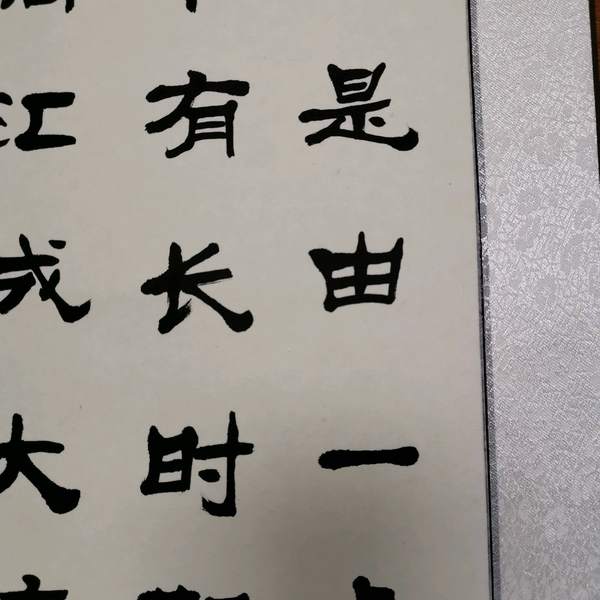 是由一
有长时
江成大